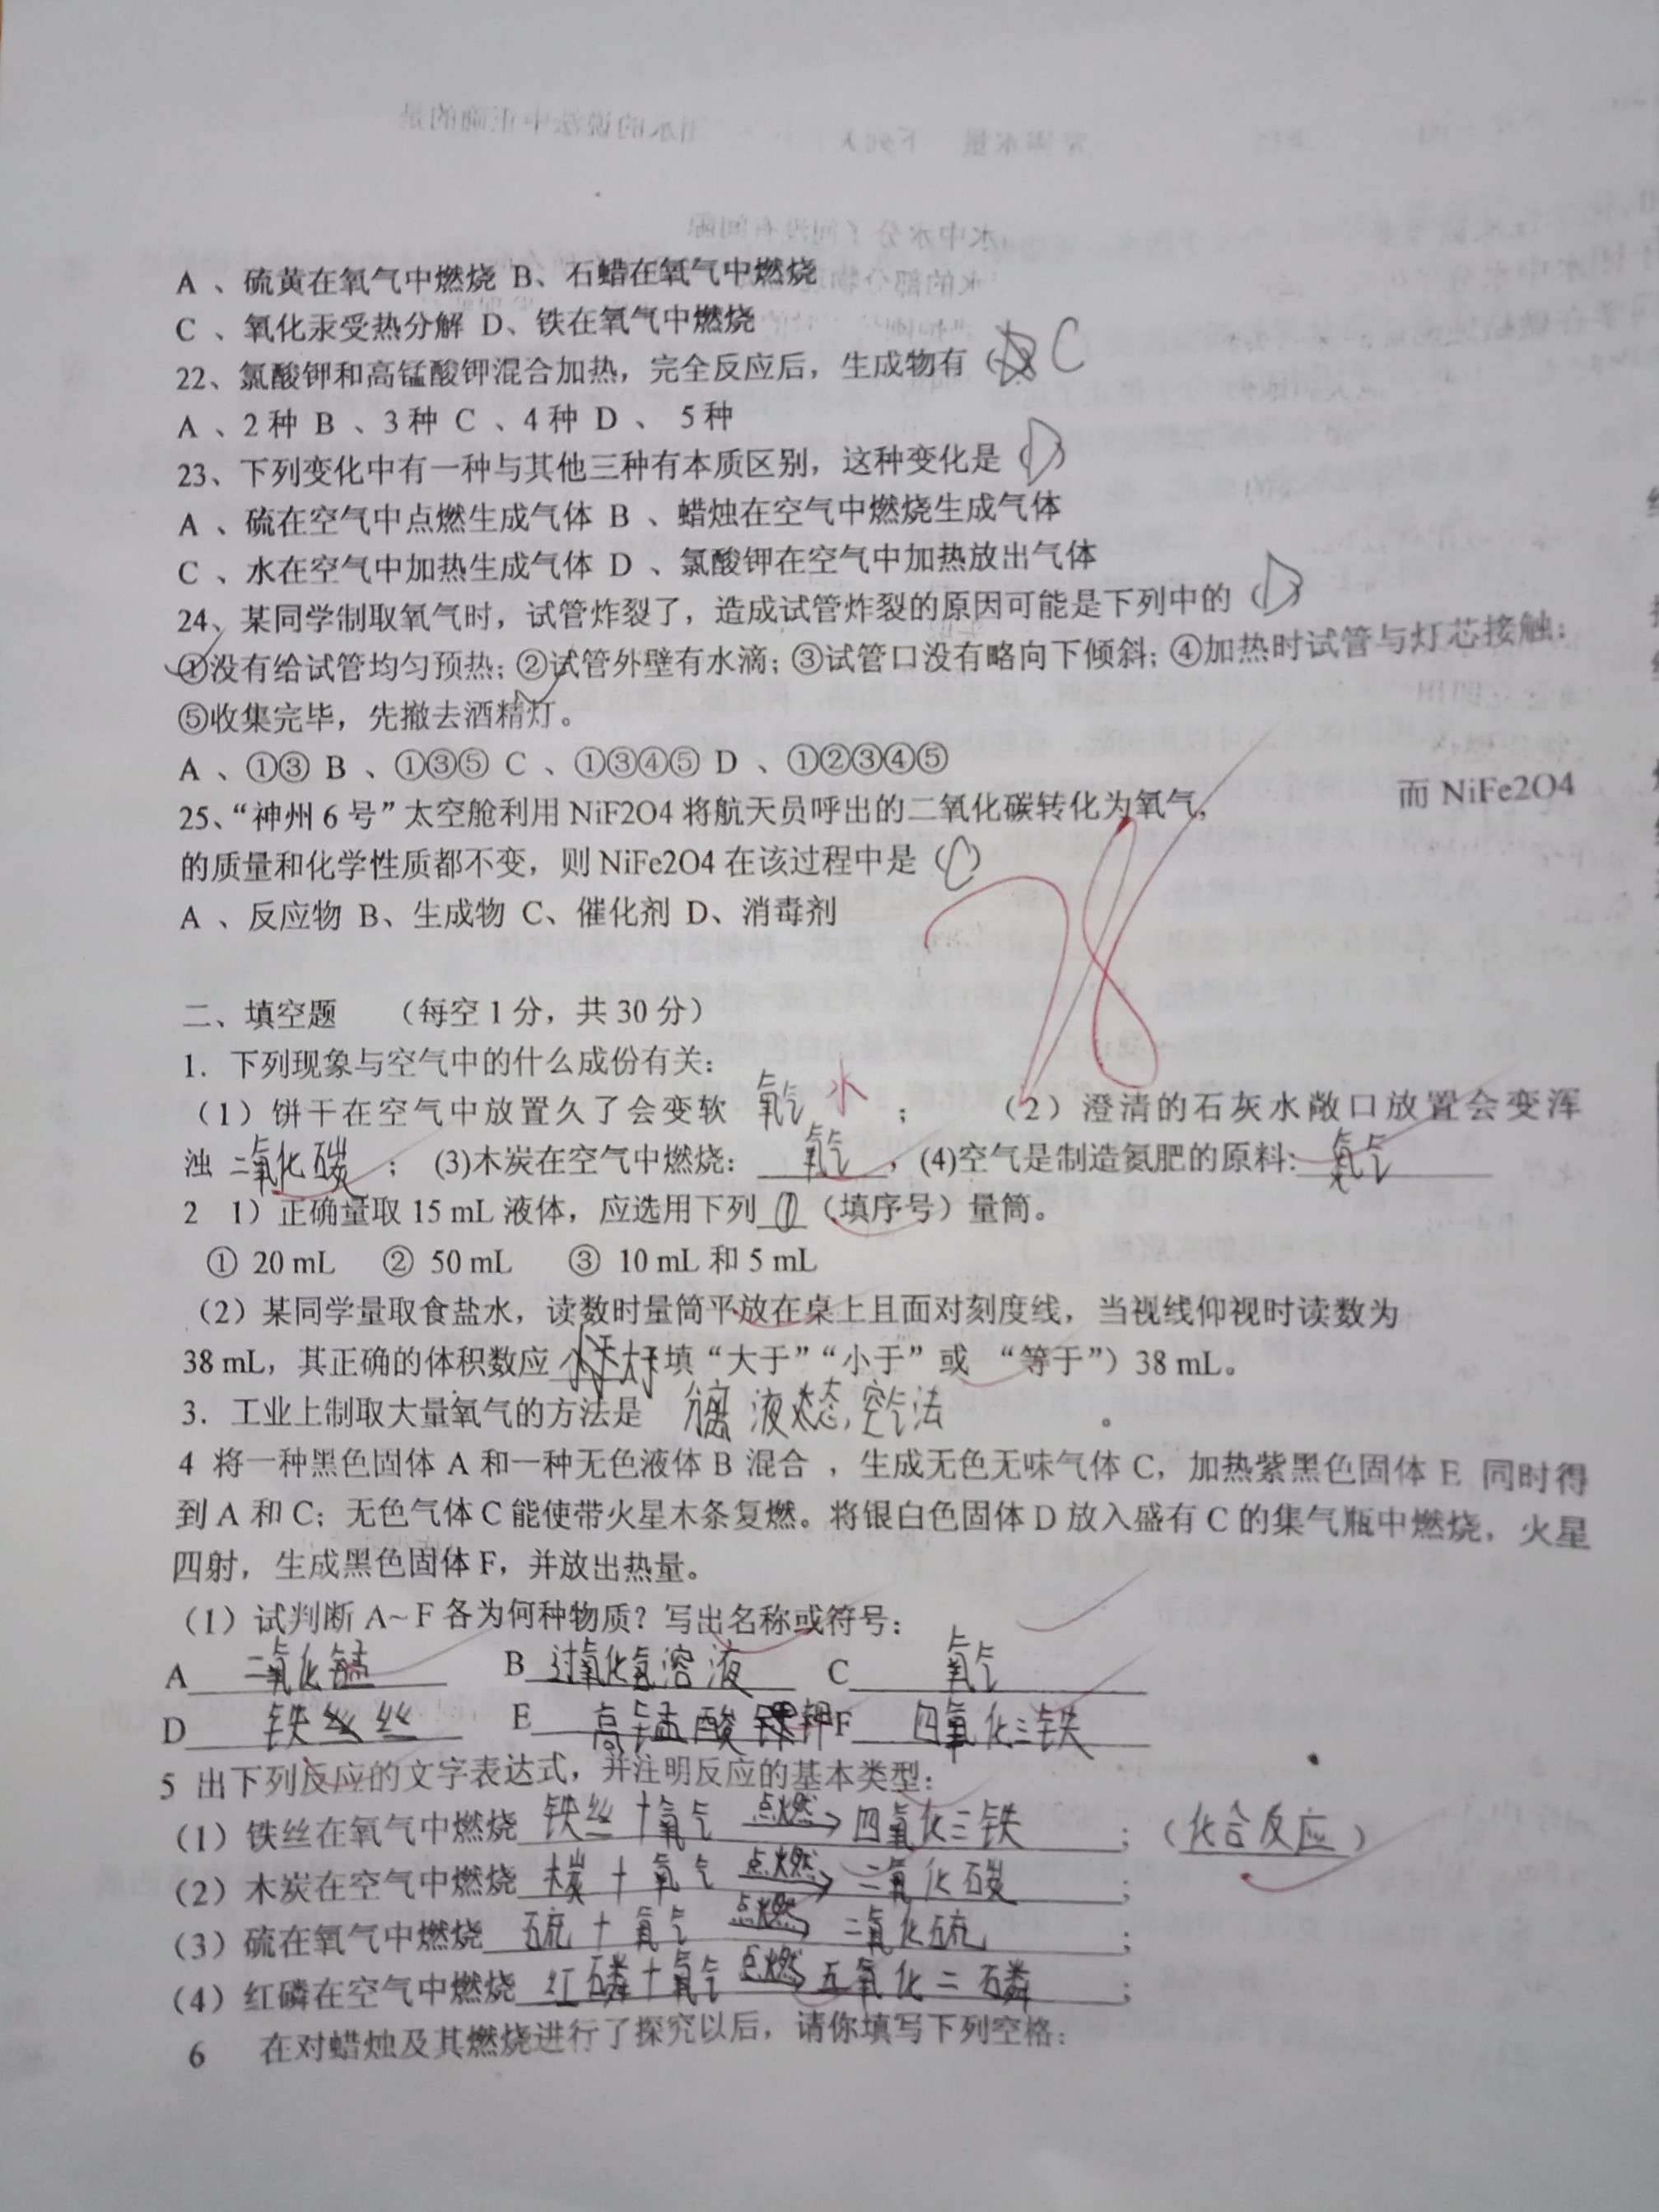 A 、硫黄在氧气中燃烧 B、石蜡在氧气中燃烧
C 、氧化汞受热分解 D、铁在氧气中燃烧
22、氯酸钾和高锰酸钾混合加热，完全反应后，生成物有（ ）C
A 、2种 B 、3种 C 、4种 D 、 5种
23、下列变化中有一种与其他三种有本质区别，这种变化是（D）
A 、硫在空气中点燃生成气体 B 、蜡烛在空气中燃烧生成气体
C 、水在空气中加热生成气体 D 、氯酸钾在空气中加热放出气体
24、某同学制取氧气时，试管炸裂了，造成试管炸裂的原因可能是下列中的（D）
①没有给试管均匀预热；②试管外壁有水滴；③试管口没有略向下倾斜；④加热时试管与灯芯接触；
⑤收集完毕，先撤去酒精灯。
A 、①③ B 、①③⑤ C 、①③④⑤ D 、①②③④⑤
25、“神州6号”太空舱利用NiF2O4将航天员呼出的二氧化碳转化为氧气， 而NiFe2O4
的质量和化学性质都不变，则NiFe2O4在该过程中是（C）
A 、反应物 B、生成物 C、催化剂 D、消毒剂
78
二、填空题 （每空1分，共30分）
1. 下列现象与空气中的什么成份有关：
（1）饼干在空气中放置久了会变软 氧气 水 ； （2）澄清的石灰水敞口放置会变浑
浊 二氧化碳 ； (3)木炭在空气中燃烧： 氧气 ，(4)空气是制造氮肥的原料: 氮气
2 1）正确量取15 mL液体，应选用下列 ① （填序号）量筒。
① 20 mL ② 50 mL ③ 10 mL和5 mL
（2）某同学量取食盐水，读数时量筒平放在桌上且面对刻度线，当视线仰视时读数为
38 mL，其正确的体积数应 大于 填“大于”“小于”或 “等于”）38 mL。
3. 工业上制取大量氧气的方法是 分离液态空气法 。
4 将一种黑色固体A和一种无色液体B 混合 ，生成无色无味气体C，加热紫黑色固体E 同时得
到A和C；无色气体C能使带火星木条复燃。将银白色固体D放入盛有C的集气瓶中燃烧，火星
四射，生成黑色固体F，并放出热量。
（1）试判断A~F各为何种物质？写出名称或符号：
A 二氧化锰 B 过氧化氢溶液 C 氧气
D 铁丝 E 高锰酸钾 F 四氧化三铁
5 出下列反应的文字表达式，并注明反应的基本类型：
（1）铁丝在氧气中燃烧 铁丝+氧气 点燃→ 四氧化三铁 ；（化合反应）
（2）木炭在空气中燃烧 木炭+氧气 点燃→ 二氧化碳 ；
（3）硫在氧气中燃烧 硫+氧气 点燃→ 二氧化硫 ；
（4）红磷在空气中燃烧 红磷+氧气 点燃→ 五氧化二磷 ；
6 在对蜡烛及其燃烧进行了探究以后，请你填写下列空格：